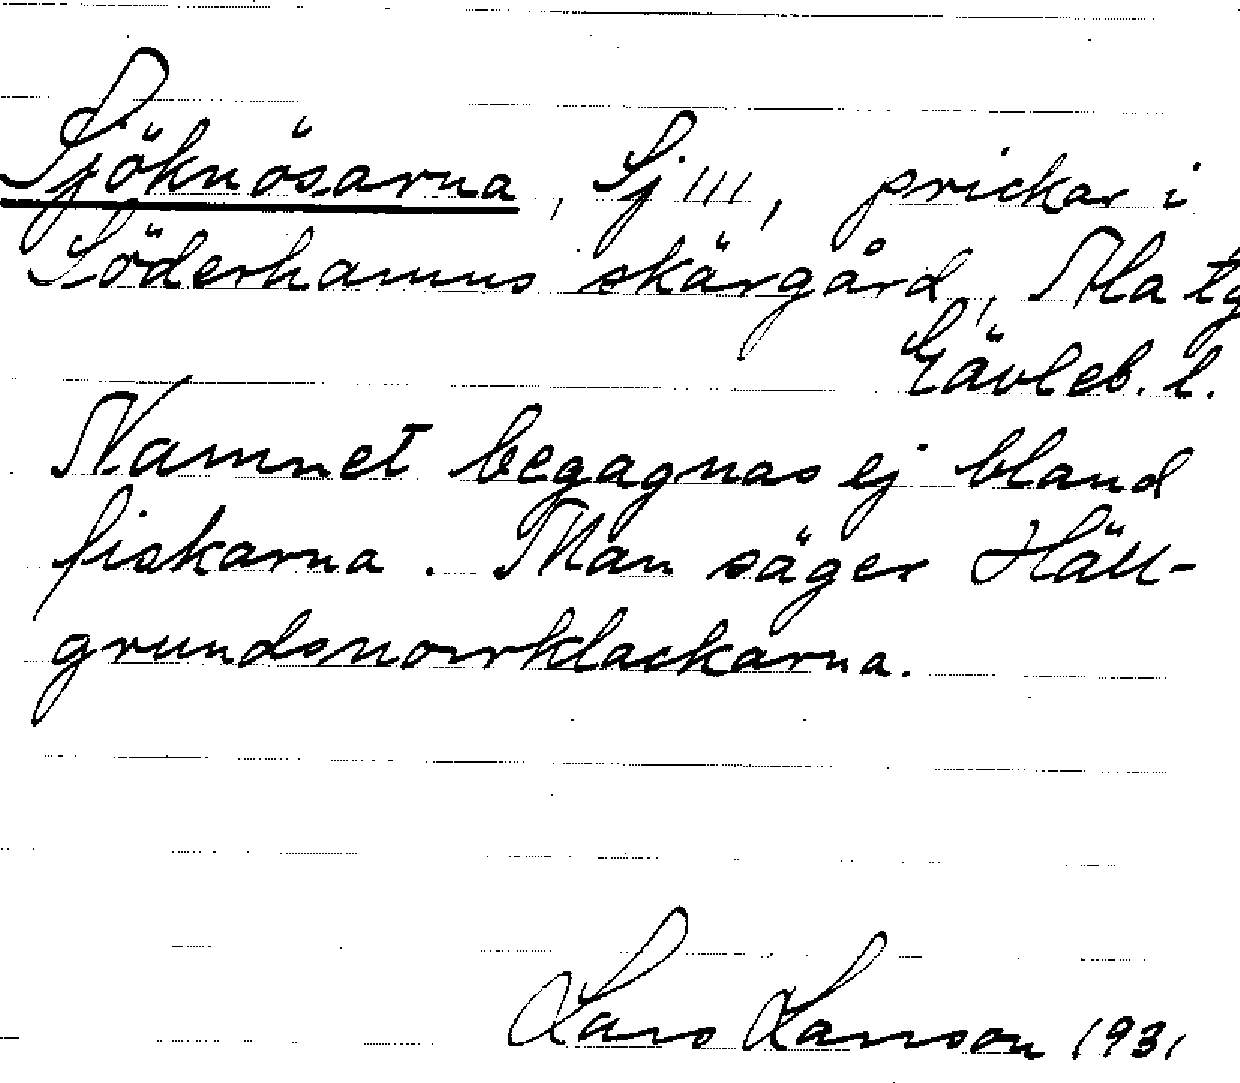 Sjöknösarna, Sj 111, prickar i
Söderhamns skärgård, Ala tg
Gävleb. l.
Namnet begagnas ej bland
fiskarna. Man säger Häll-
grundsnorrklackarna.
Lars Larsson 1931